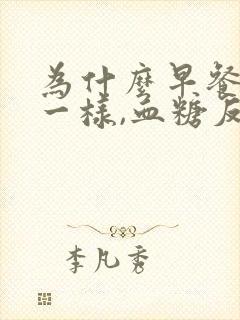 為什麼早餐
一樣,血糖反
李凡秀